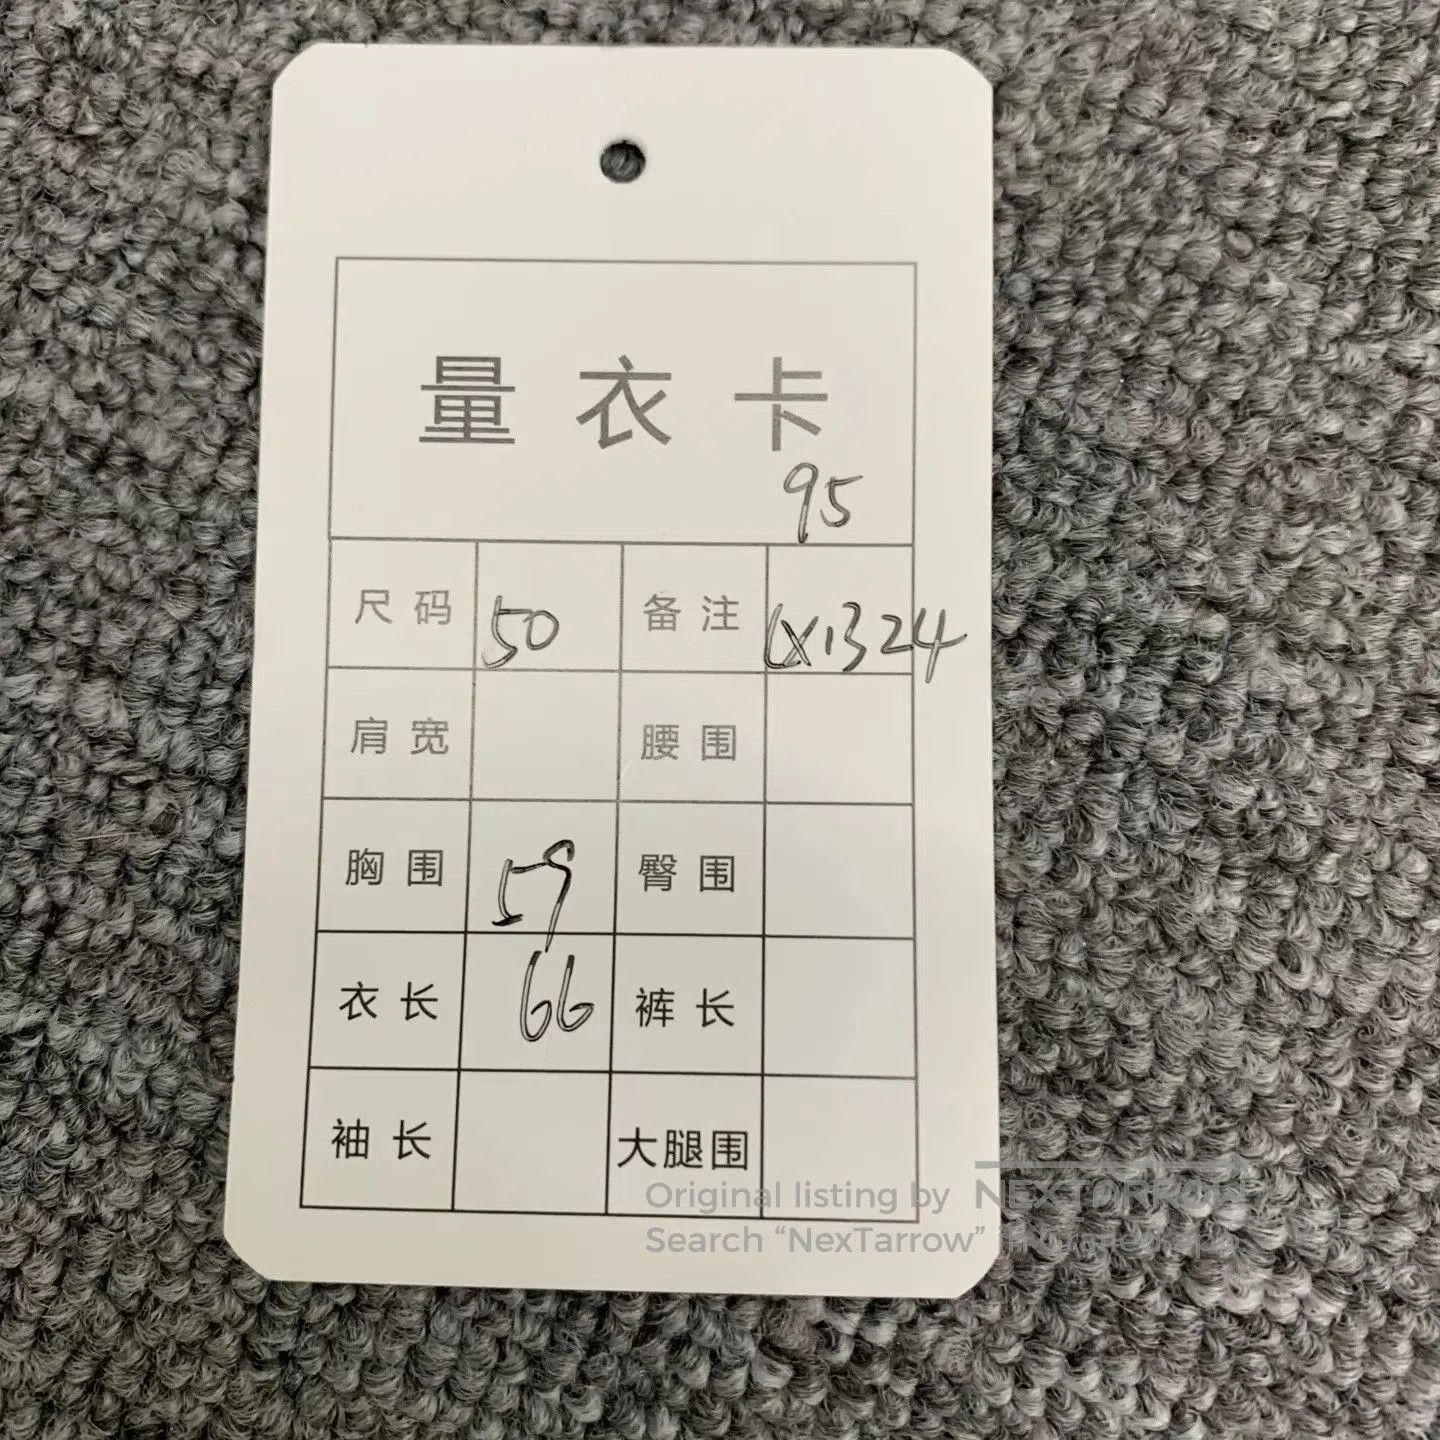 量衣卡
95
尺码 50 备注 LX1324
肩宽 腰围
胸围 59 臀围
衣长 66 裤长
袖长 大腿围
Original listing by NEXTARROW
Search “NexTarrow”